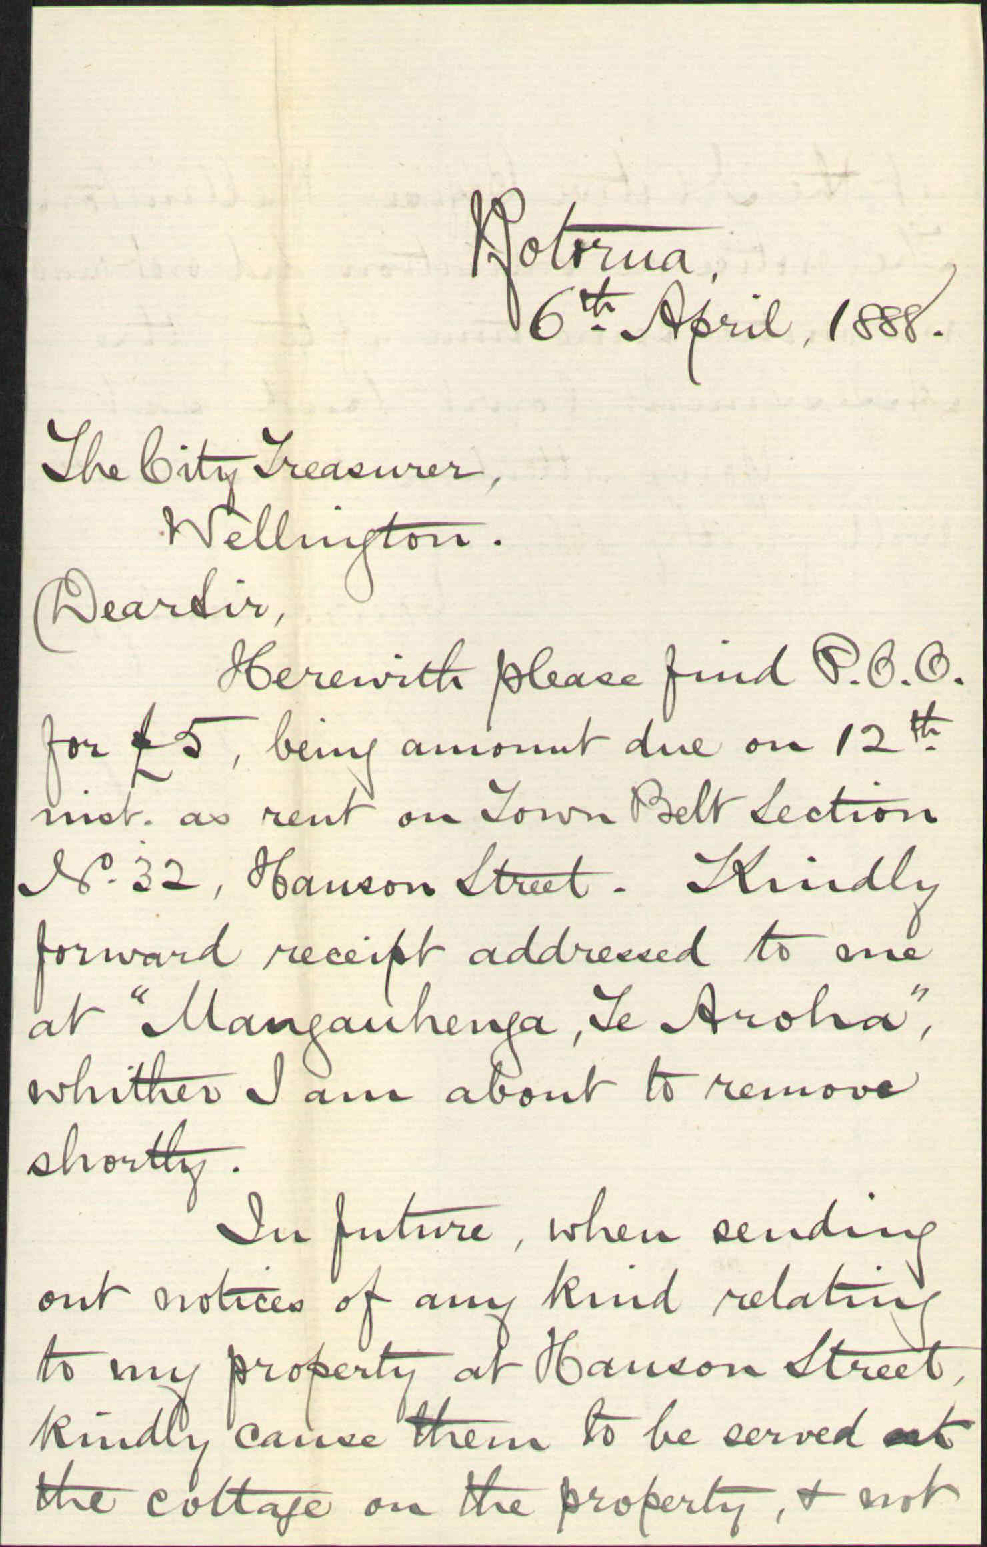 Rotorua,
6th April, 1888.
The City Treasurer,
Wellington.
Dear Sir,
Herewith please find P.O.O.
for £5, being amount due on 12th
inst. as rent on Town Belt Section
No. 32, Hanson Street. Kindly
forward receipt addressed to me
at "Mangauhenga, Te Aroha",
whither I am about to remove
shortly.
In future, when sending
out notices of any kind relating
to my property at Hanson Street,
kindly cause them to be served at
the cottage on the property, & not